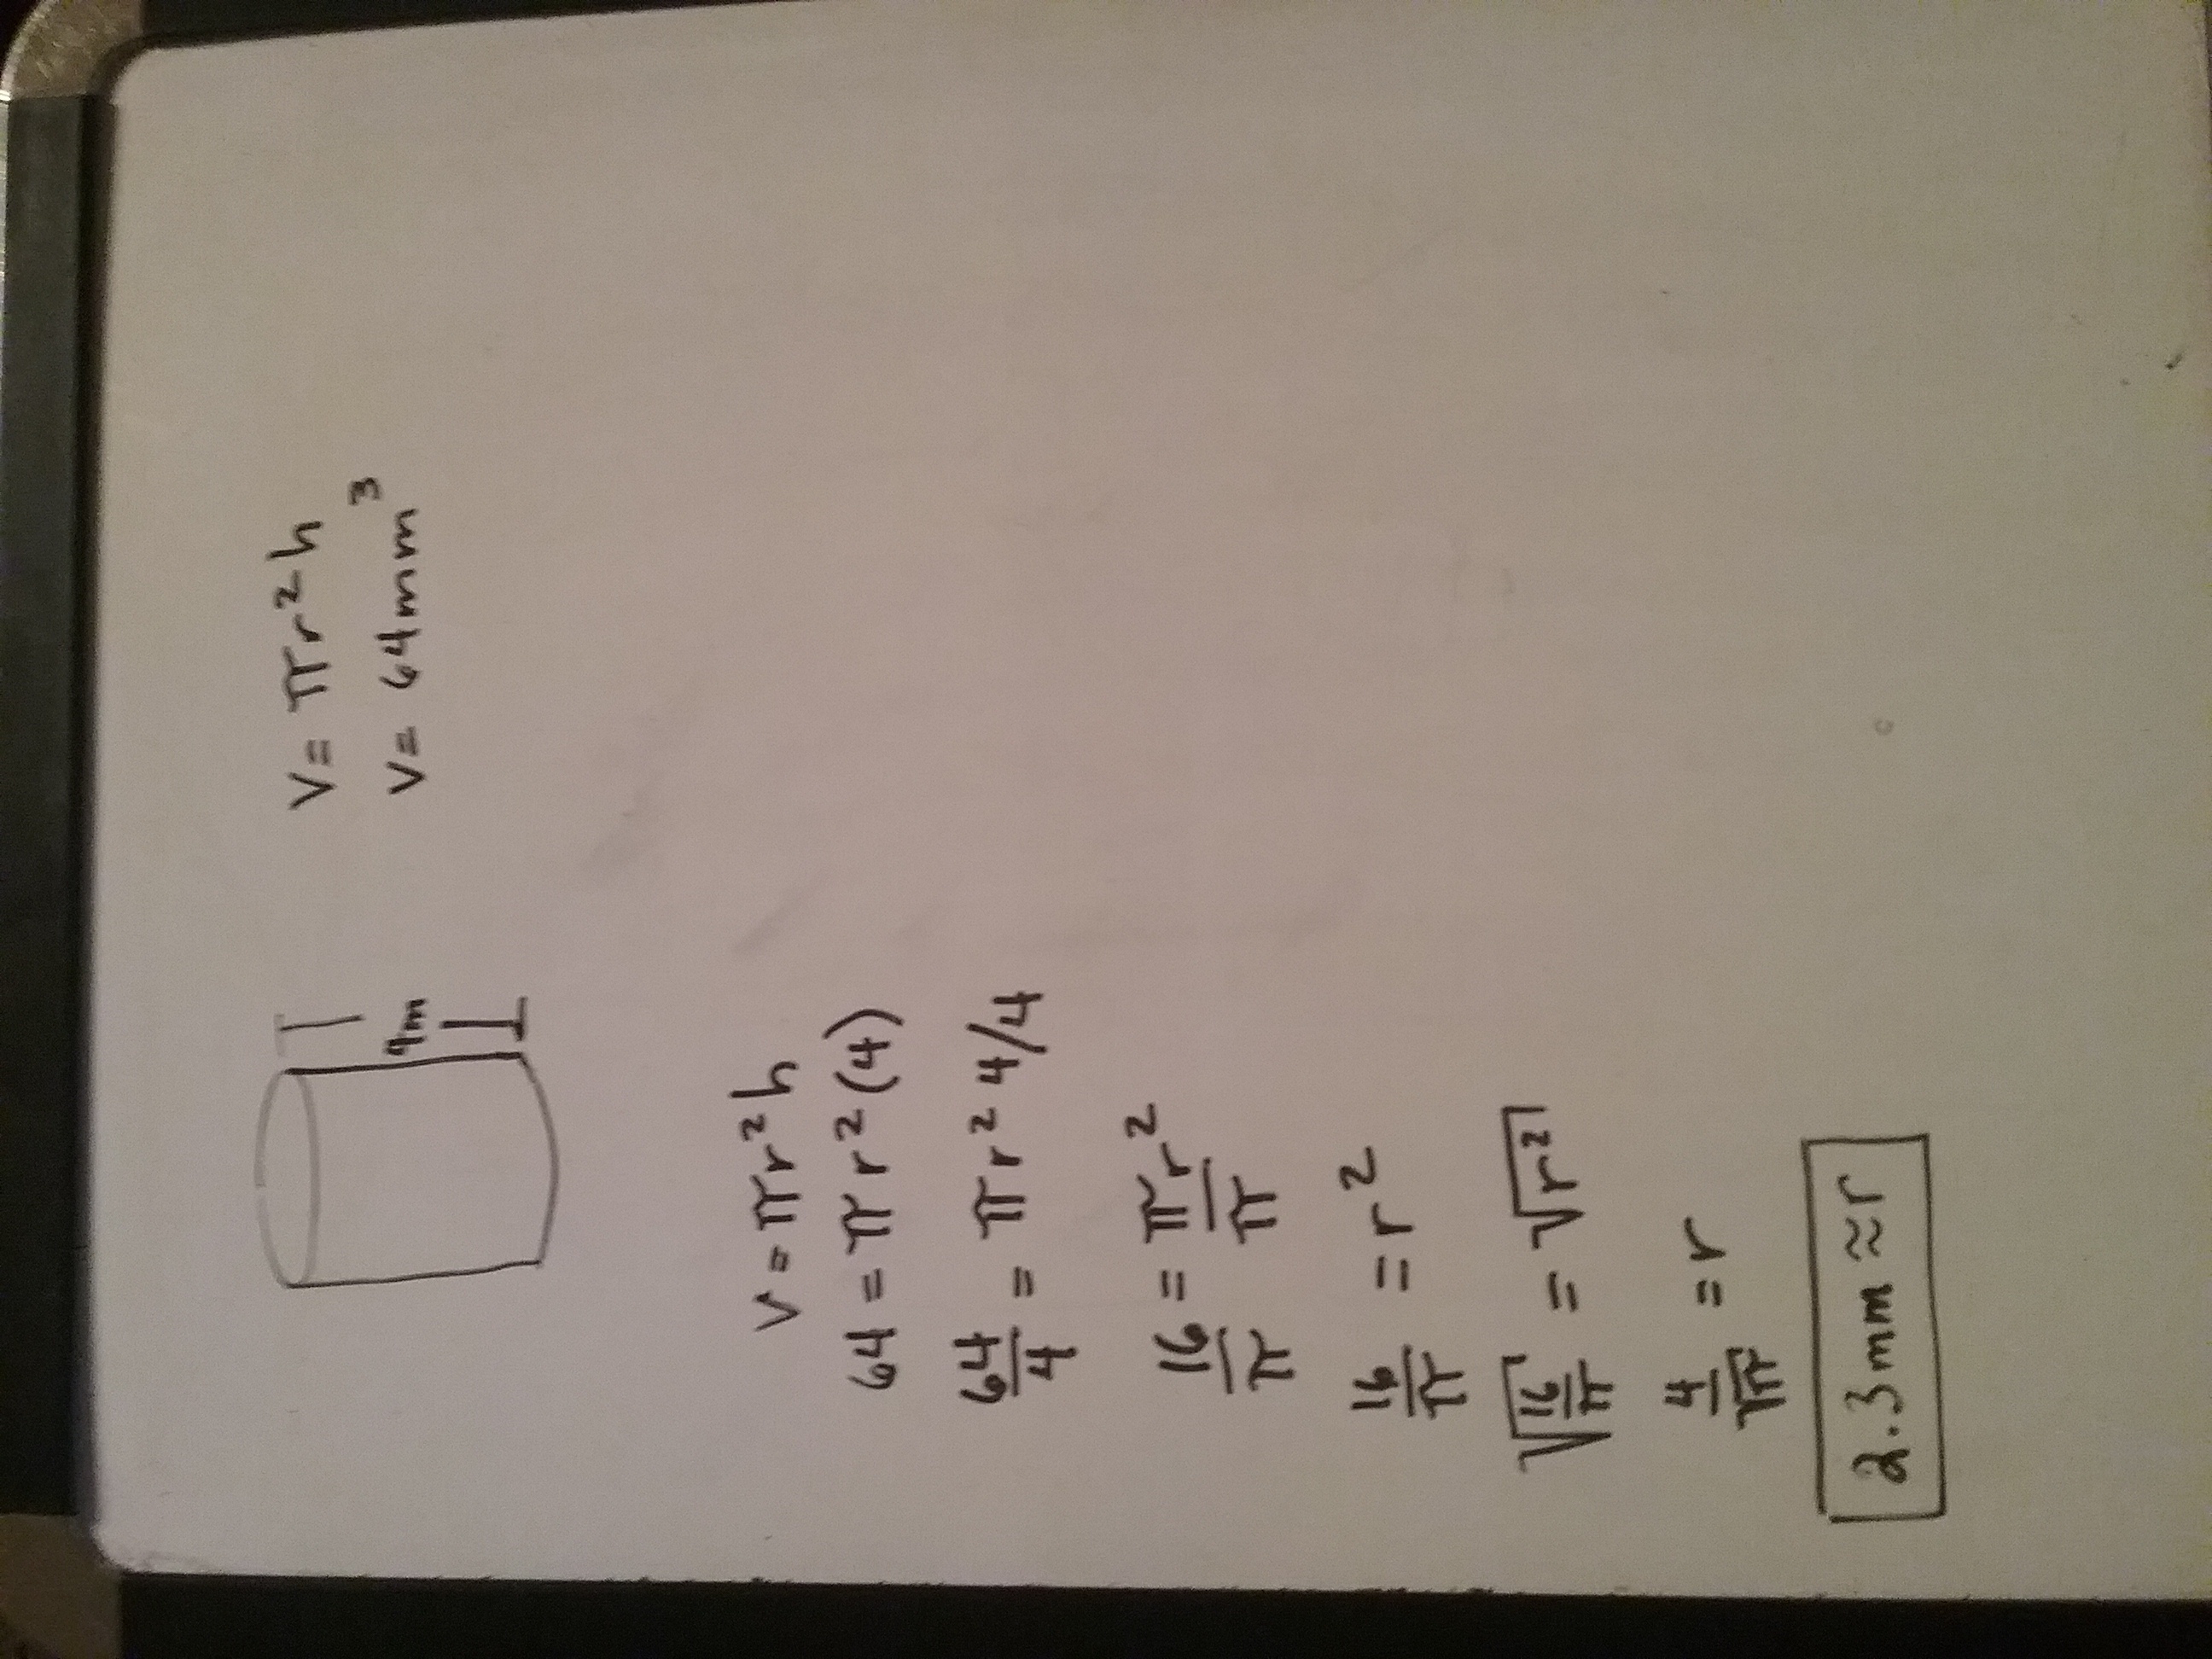 V = πr²h
V = 64mm³
4m
V = πr²h
64 = πr²(4)
64/4 = πr² 4/4
16/π = πr²/π
16/π = r²
√(16/π) = √r²
4/√π = r
2.3mm ≈ r